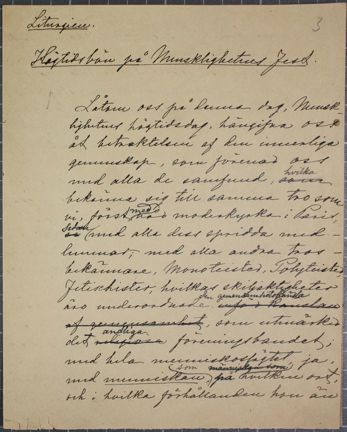 Liturgien.
3
Högtidsbön på Mensklighetens Fest.
Låtom oss på denna dag, Mensk-
lighetens högtidsdag, hängifva oss
åt betraktelsen af den innerliga
gemenskap, som förenar oss
med alla de samfund, hvilka
bekänna sig till samma tro som
vi, först med moderkyrkan i Paris,
sedan med alla dess spridda med-
lemmar, med alla andra tros-
bekännare, Monoteister, Polyteister,
Fetischister, hvilkas skiljaktigheter
äro underordnade den gemenskapskänsla
som utmärker
det andliga föreningsbandet;
med hela menniskoslägtet, ja,
med menniskan, som menniska, på hvilken ort,
och i hvilka förhållanden hon än